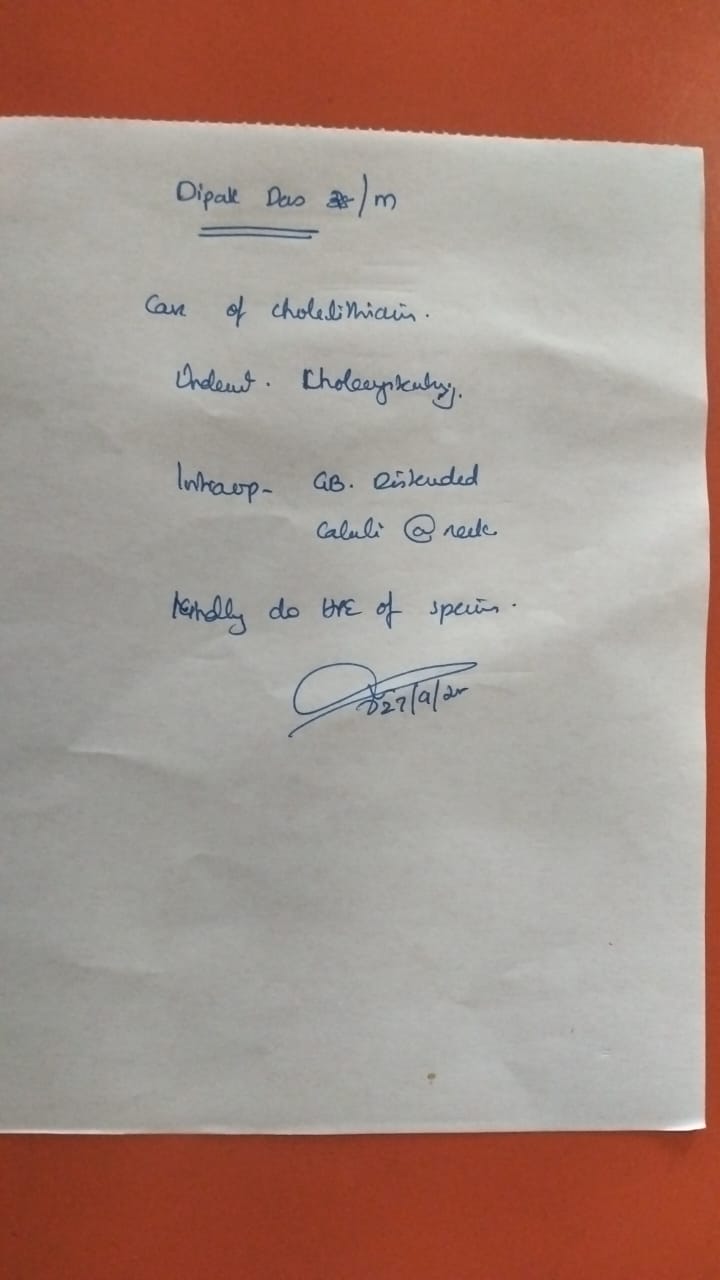 Dipak Das /m
Case of cholelithiasis.
Underwent. Cholecystectomy.
Intraop- GB. Distended
Calculi @ neck
Kindly do HPE of specimen.
27/9/20